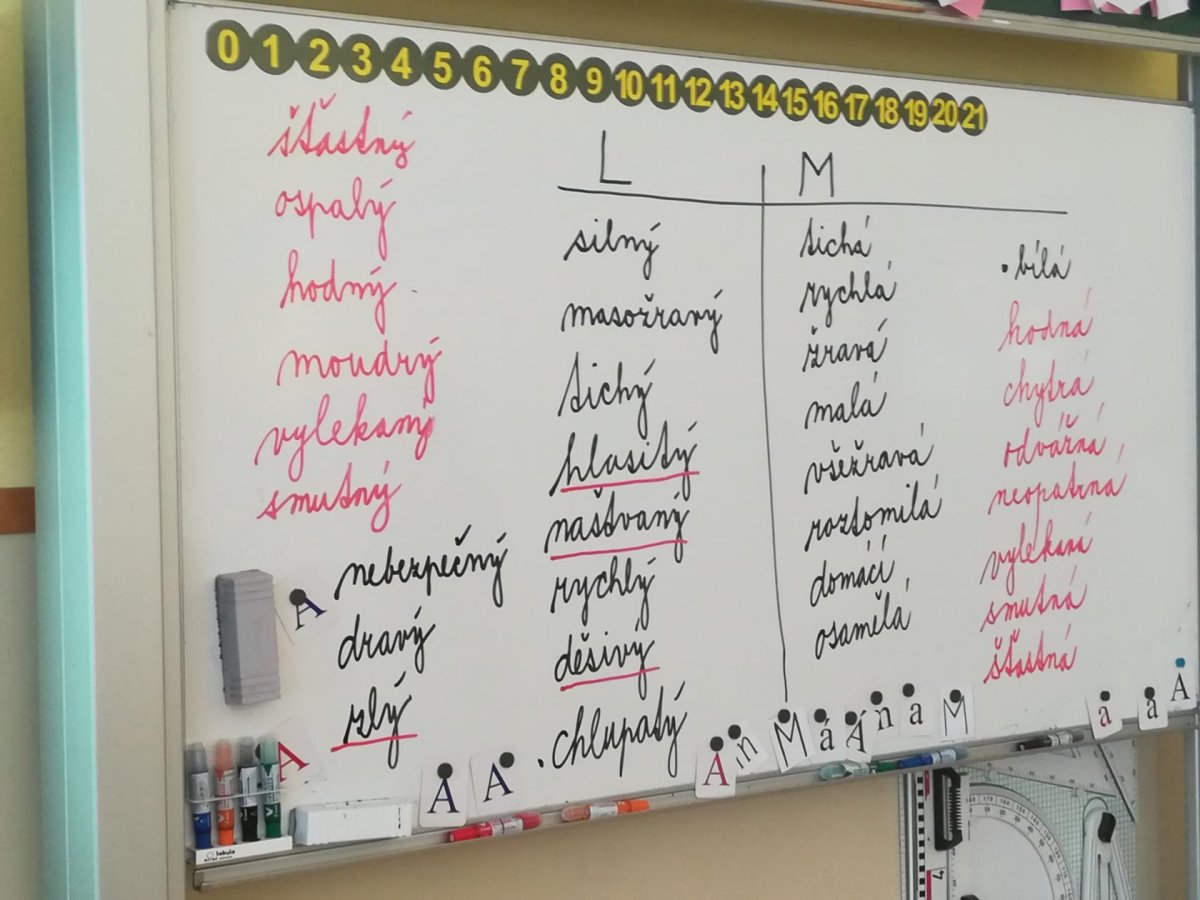 0 1 2 3 4 5 6 7 8 9 10 11 12 13 14 15 16 17 18 19 20 21
šťastný
ospalý
hodný
moudrý
vylekaný
smutný
nebezpečný
dravý
zlý
L
silný
masožravý
tichý
hlasitý
naštvaný
rychlý
děsivý
chlupatý
M
tichá
rychlá
žravá
malá
všežravá
roztomilá
domácí
osamělá
bílá
hodná
chytrá
odvážná
neopatrná
vylekaná
smutná
šťastná
A
A
A A A n M á Á n a M a a A
tabula